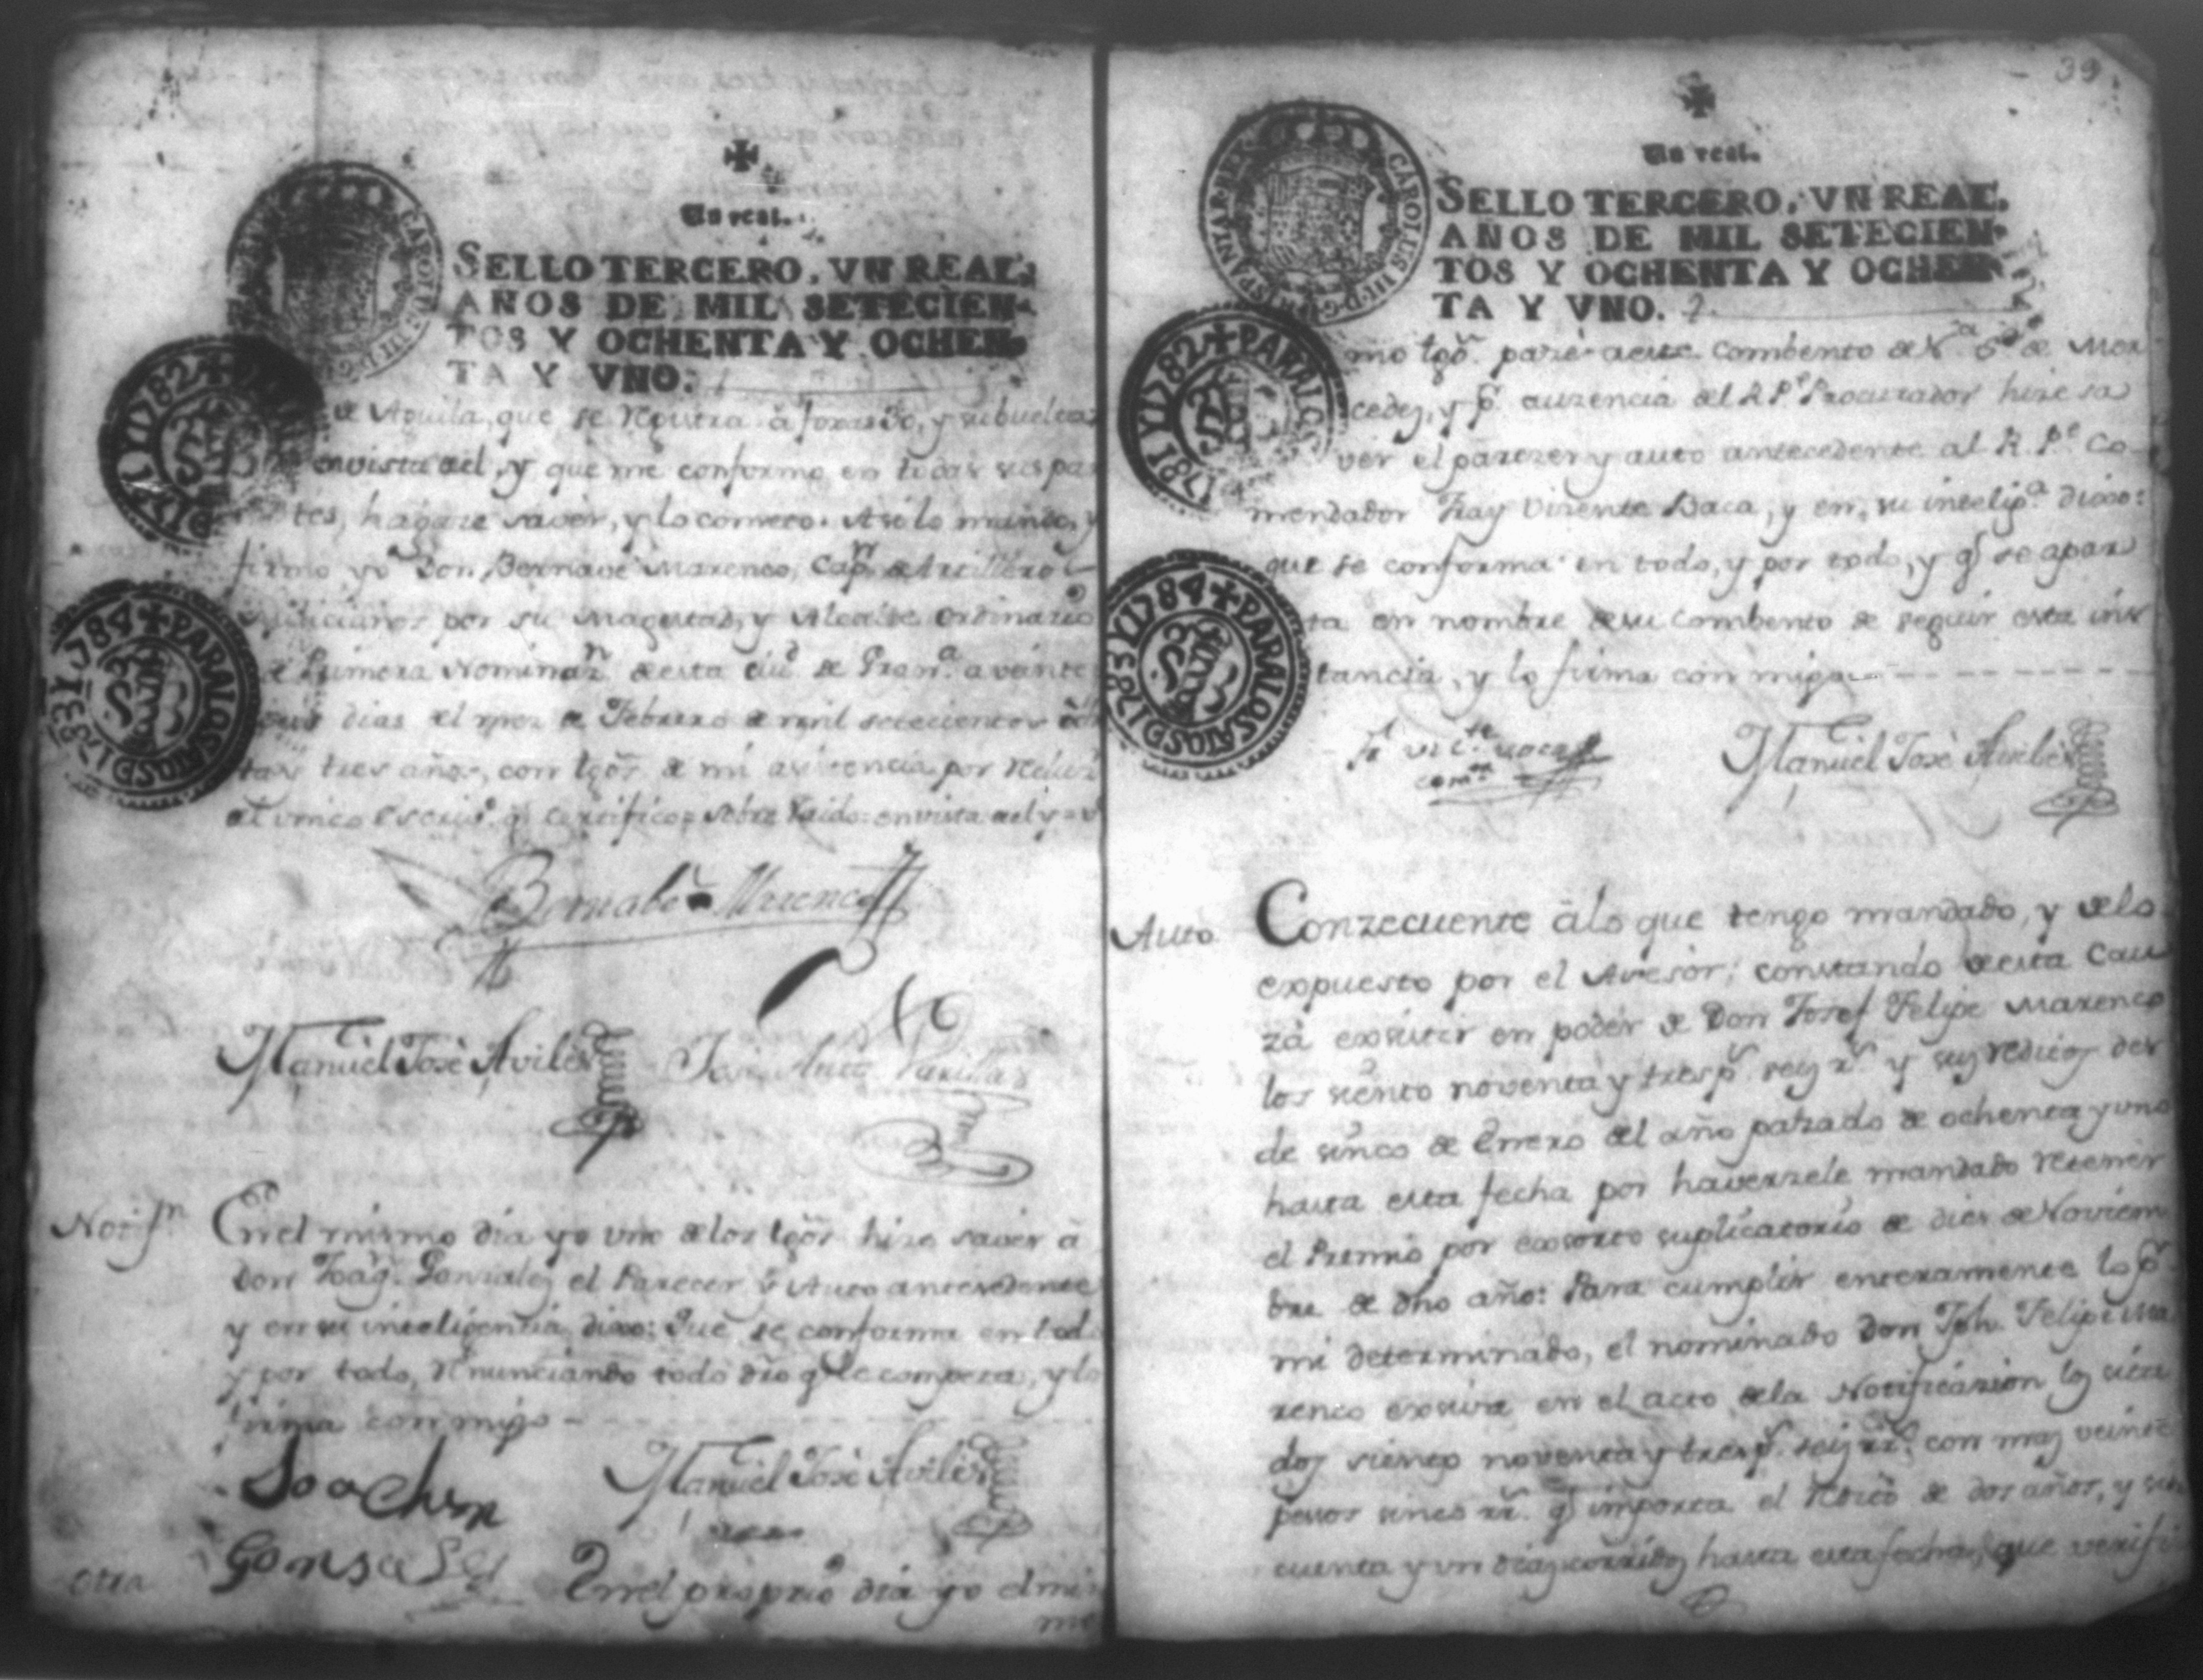 Un real.
SELLO TERCERO, VN REAL,
AÑOS DE MIL SETECIEN-
TOS Y OCHENTA Y OCHEN-
TA Y VNO.
CAROLUS III D G
1781 Y 1782 PARA LOS
PARA LOS AÑOS D 1783 Y 1784
de Aguila, que se registra à foxas 30, y subuelta
envista del, y que me conformo en todas sus par
tes, hagase saver, y lo cometo. Asi lo mando, y
firmo yo Don Bernave Marenco, Capn. de Artillero
Milicianos por su Magestad, y Alcalde Ordinario
de Primera Nominazn. de esta ciud. de Gran.a a veinte
seis dias del mes de Febrero de mil setecientos och
ta y tres años, con tgos. de mi asistencia por
el unico escrivo. q certifico= sobre raido: envista del y= v
Bernabè Marenco
Manuel Josè Aviles
Notifn
En el mismo dia yo uno de los tgos hize saver à
Don Joaqn. Gonzalez el Parecer y Auto antesedente
y en su inteligencia dixo: Que se conforma en todo
y por todo, renunciando todo dro q le competa, y lo
firma conmigo
Joachin
Gonsales
Manuel Josè Aviles
otra
En el proprio dia yo el mis
mo
39
Un real.
SELLO TERCERO, VN REAL,
AÑOS DE MIL SETECIEN-
TOS Y OCHENTA Y OCHEN-
TA Y VNO.
CAROLUS III D G HISPANIAR REX
1781 Y 1782 PARA LOS
PARA LOS AÑOS D 1783 Y 1784
mo tgo. pasè a este Combento de N.a S.a de Mer
cedes, y pr. auzencia del R.P.e Procurador hize sa
ver el parezer y auto antecedente al R. P.e Co-
mendador Fray Visente Baca, y en su intelig.a dixo:
que se conforma en todo, y por todo, y q se apar
ta en nombre de su Combento de seguir esta ins
tancia, y lo firma con migo
Fr. Vic.te Vaca
com.or
Manuel Josè Aviles
Auto
Conzecuente à lo que tengo mandado, y de lo
expuesto por el Asesor; constando de esta Cau
za existir en poder de Don Josef Felipe Marenco
los siento noventa y tres ps. seis rs. y sus reditos des
de sinco de Enero del año pasado de ochenta y uno
hasta esta fecha por haverzele mandado retener
el Premio por exsorto suplicatorio de dies de Noviem
bre de dho año: Para cumplir enteramente lo pr.
mi determinado, el nominado Don Jph. Felipe Ma
renco exsiva en el acto de la Notificazion los cita
dos siento noventa y tres ps. seis rrs. con mas veinte
pesos sinco rrs. q importa el redito de dos años, y sin
cuenta y un dias corridos hasta esta fecha, que verifi